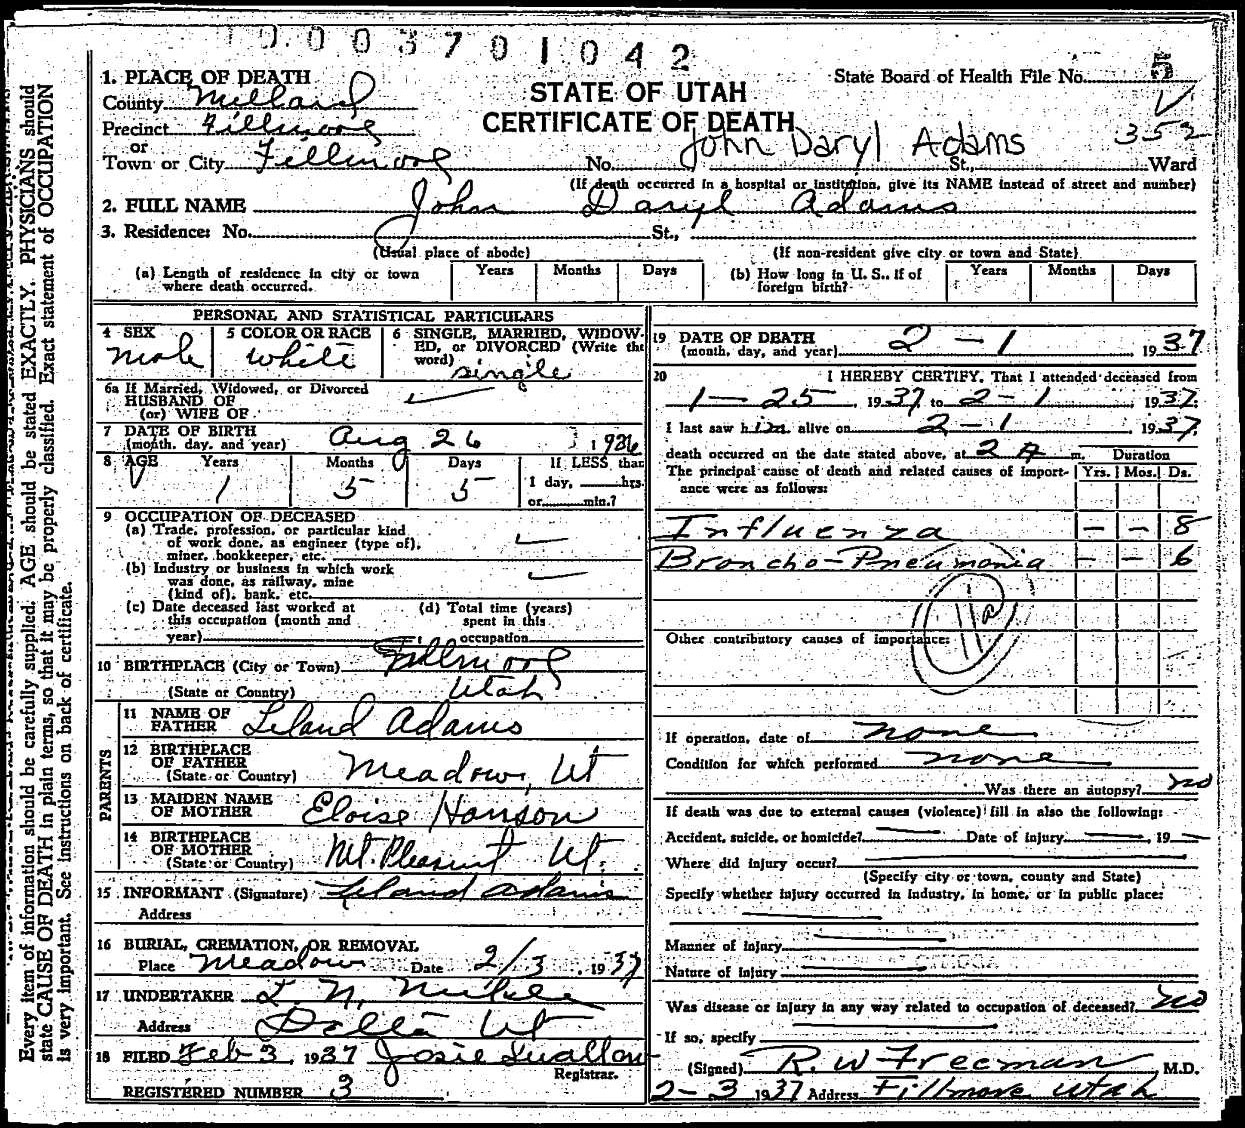 10 0 0 3 7 0 1 0 4 2
1. PLACE OF DEATH
County Millard
Precinct Fillmore
or
Town or City Fillmore
STATE OF UTAH
CERTIFICATE OF DEATH
State Board of Health File No. 5
352
John Daryl Adams
No. St., Ward
(If death occurred in a hospital or institution, give its NAME instead of street and number)
2. FULL NAME John Daryl Adams
3. Residence: No. St.,
(Usual place of abode) (If non-resident give city or town and State)
(a) Length of residence in city or town where death occurred. Years Months Days
(b) How long in U. S., if of foreign birth? Years Months Days
PERSONAL AND STATISTICAL PARTICULARS
4 SEX male
5 COLOR OR RACE white
6 SINGLE, MARRIED, WIDOWED, or DIVORCED (Write the word) single
6a If Married, Widowed, or Divorced
HUSBAND OF
(or) WIFE OF
7 DATE OF BIRTH
(month, day, and year) Aug 26 1936
8 AGE Years 1 Months 5 Days 5 If LESS than 1 day, hrs. or min.?
9 OCCUPATION OF DECEASED
(a) Trade, profession, or particular kind
of work done, as engineer (type of),
miner, bookkeeper, etc.
(b) Industry or business in which work
was done, as railway, mine
(kind of), bank, etc.
(c) Date deceased last worked at this occupation (month and year)
(d) Total time (years) spent in this occupation
10 BIRTHPLACE (City or Town) Fillmore
(State or Country) Utah
PARENTS
11 NAME OF FATHER Leland Adams
12 BIRTHPLACE OF FATHER (State or Country) Meadow, Ut
13 MAIDEN NAME OF MOTHER Eloise Hanson
14 BIRTHPLACE OF MOTHER (State or Country) Mt. Pleasant Ut.
15 INFORMANT (Signature) Leland Adams
Address
16 BURIAL, CREMATION, OR REMOVAL
Place Meadow Date 2/3, 1937
17 UNDERTAKER L. N.
Address Delta Ut
18 FILED Feb 3, 1937 Josie
Registrar.
REGISTERED NUMBER 3
19 DATE OF DEATH
(month, day, and year) 2-1 1937
20 I HEREBY CERTIFY, That I attended deceased from
1-25, 1937 to 2-1, 1937.
I last saw him alive on 2-1, 1937.
death occurred on the date stated above, at 2 A m. Duration
The principal cause of death and related causes of importance were as follows: Yrs. Mos. Ds.
Influenza - - 8
Broncho-Pneumonia - - 6
11a
Other contributory causes of importance:
If operation, date of none
Condition for which performed none
Was there an autopsy? no
If death was due to external causes (violence) fill in also the following:
Accident, suicide, or homicide? Date of injury 19
Where did injury occur?
(Specify city or town, county and State)
Specify whether injury occurred in industry, in home, or in public place:
Manner of Injury
Nature of Injury
Was disease or injury in any way related to occupation of deceased? no
If so, specify
(Signed) R. W Freeman M.D.
2-3 1937 Address Fillmore Utah
Every item of information should be carefully supplied. AGE should be stated EXACTLY. PHYSICIANS should
state CAUSE OF DEATH in plain terms, so that it may be properly classified. Exact statement of OCCUPATION
is very important. See instructions on back of certificate.